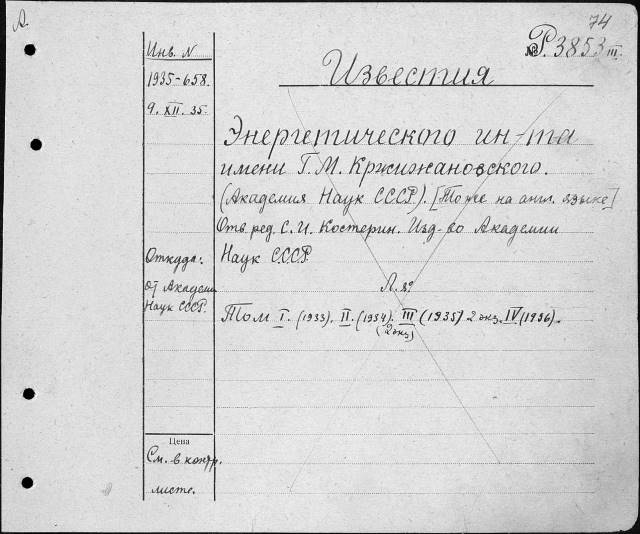 А.
74
№ Р. 3853 III.
Инв. N
1935-658.
9. XII. 35.
Известия
Энергетического ин-та
имени Г. М. Кржижановского.
(Академия Наук СССР). [Тоже на англ. языке]
Отв. ред. С. И. Костерин. Изд-во Академии
Наук СССР
Л. 8º
Том I. (1933). II. (1934). III (1935) 2 экз. IV (1936).
(2 экз)
Откуда:
От Академии
Наук СССР.
Цена
См. в контр.
листе.